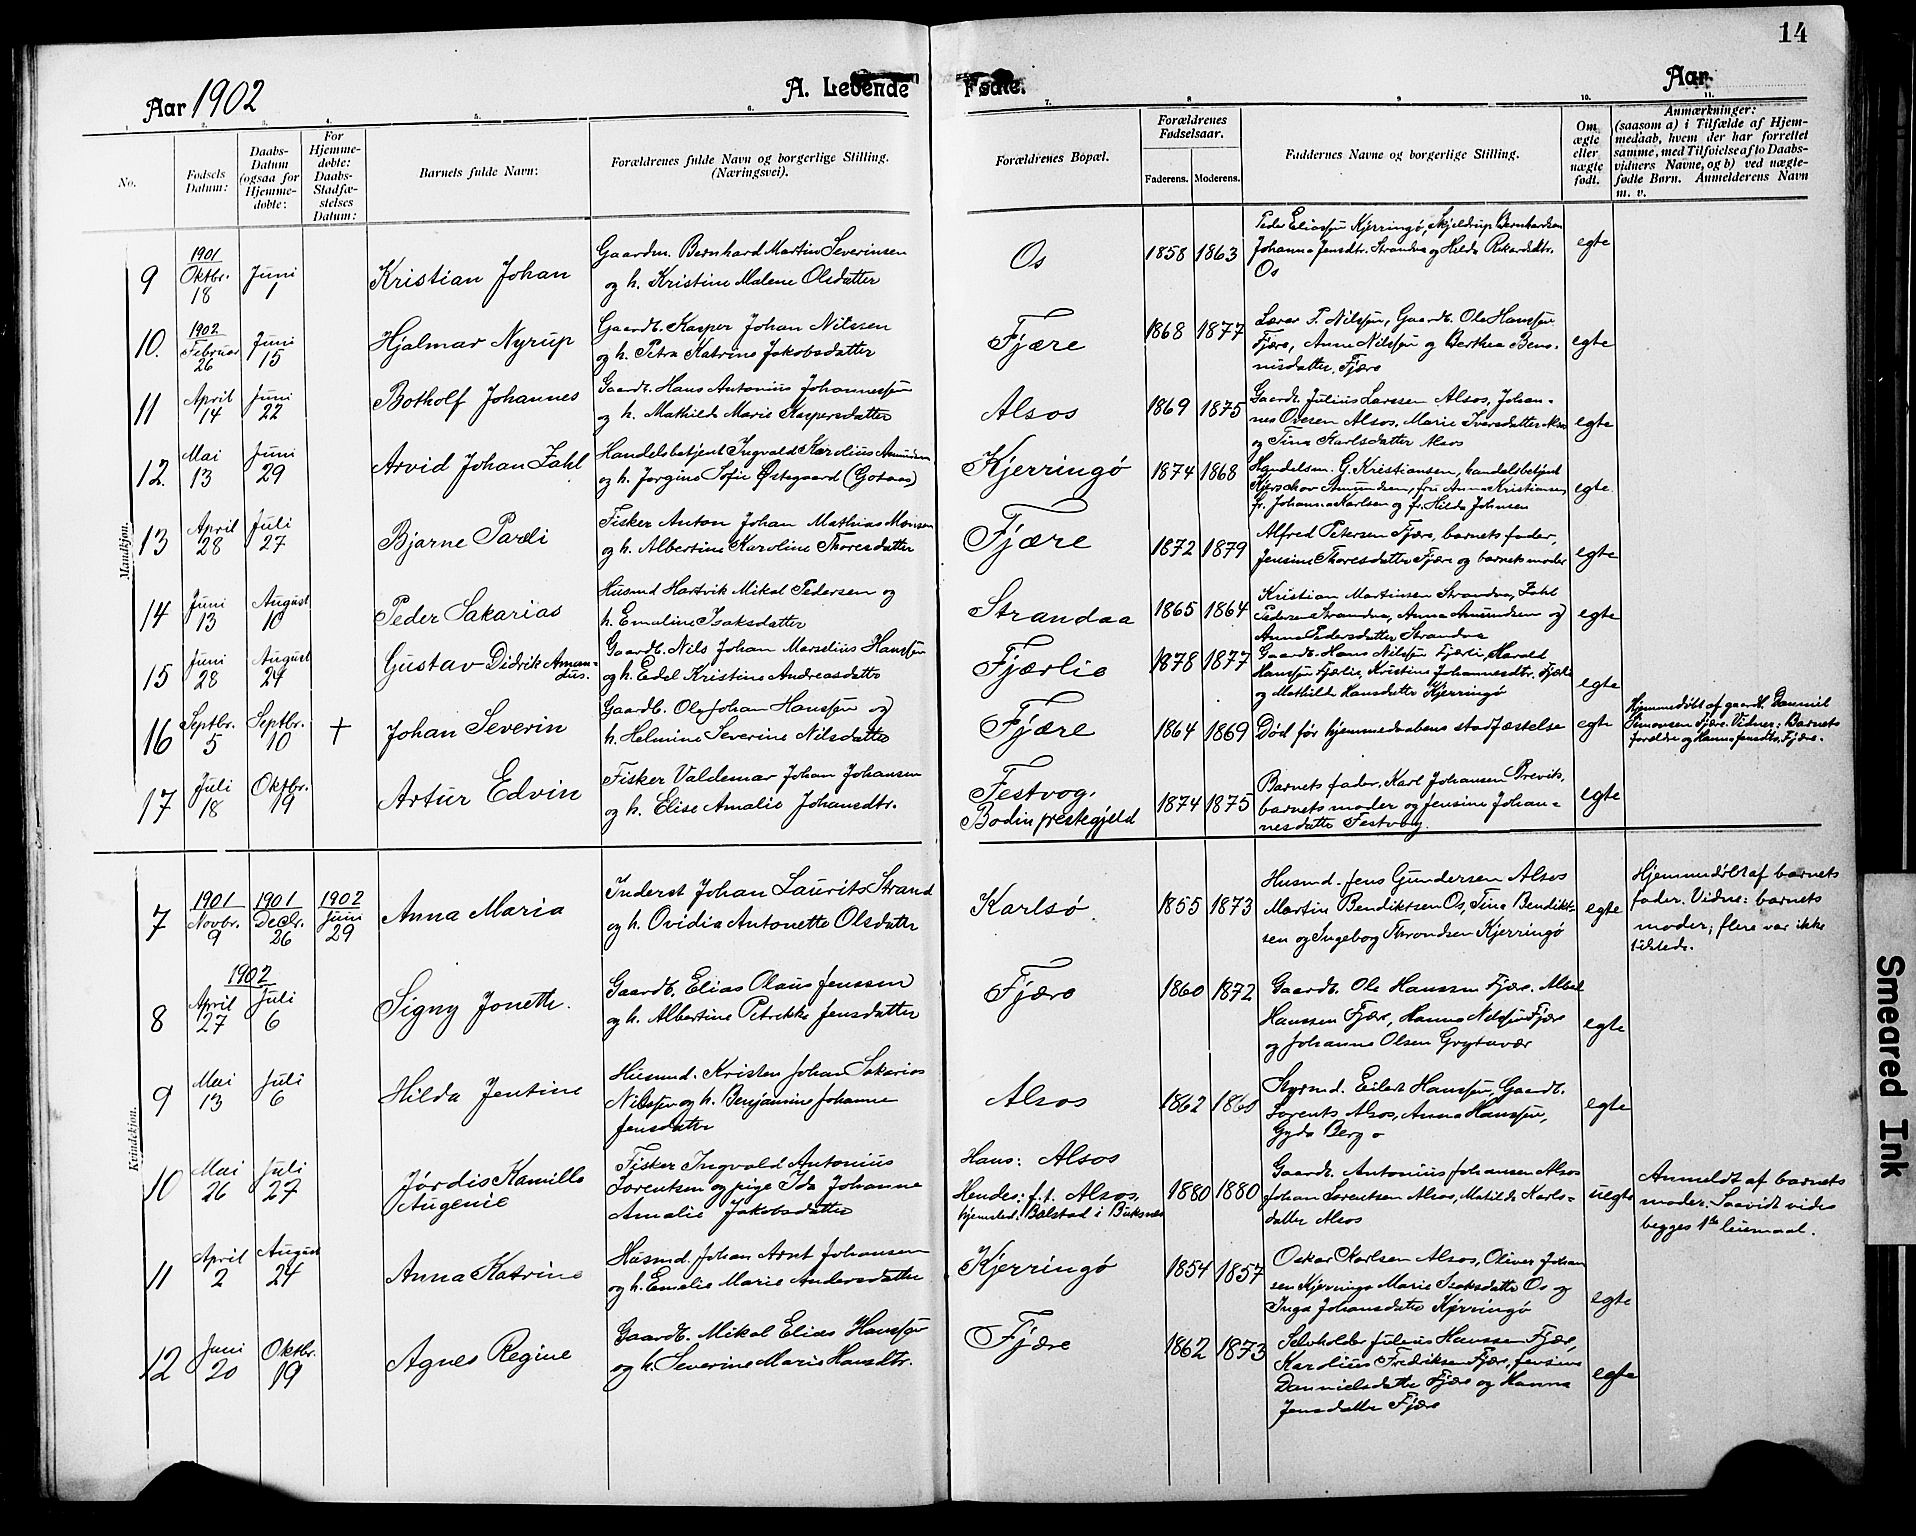 14
Aar 1902
A. Levende
Fødte.
Aar
1.
2.
3.
4.
5.
6.
7.
8
9
10.
11.
No.
Fødsels Datum:
Daabs-Datum (ogsaa for Hjemmedøbte:
For Hjemmedøbte: Daabs-Stadfæstelses Datum:
Barnets fulde Navn:
Forældrenes fulde Navn og borgerlige Stilling.
(Næringsvei).
Forældrenes Bopæl.
Forældrenes Fødselsaar.
Faderens. Moderens.
Faddernes Navne og borgerlige Stilling.
Om ægte eller uægte født.
Anmærkninger:
(saasom a) i Tilfælde af Hjemmedaab, hvem der har forrettet samme, med Tilføielse af to Daabsvidners Navne, og b) ved uægtefødte Børn. Anmelderens Navn m. v.
Mandkjøn.
9 1901 Oktbr. 18 Juni 1 Kristian Johan
Gaardm. Bernhard Martin Severinsen
og h. Kristine Malene Olsdatter
Os 1858 1863
Peder Eliassen Kjerringø, Skjeldrup Bernhardsen
Johanna Jensdtr. Strandaa og Hilda Rikardsdtr.
Os
egte
10. 1902 Februar 26 Juni 15 Hjalmar Nyrup
Gaardb. Kasper Johan Nilssen
og h. Petra Katrine Jakobsdatter
Fjære 1868 1877
Lærer P. Nilssen, Gaardb. Ole Hanssen
Fjære, Anne Nilssen og Berthea Ben-
nisdatter, Fjære
egte
11 April 14 Juni 22 Botholf Johannes
Gaardb. Hans Antonius Johannessen
og h. Mathilde Marie Kaspersdatter
Alsos 1869 1875
Gaardb. Julius Larssen Alsos, Johan-
nes Ovesen Alsos, Marie Iversdatter Alsos
og Tina Karlsdatter Alsos
egte
12. Mai 13 Juni 29 Arvid Johan Zahl
Handelsbetjent Ingvald Karolius Amundsen
og h. Jørgine Sofie Østegaard (Gotaas)
Kjerringø 1874 1868
Handelsm. G. Kristiansen, handelsbetjent
Kjerschov Amundsen, fru Anna Kristiansen,
fr. Johanna Karlsen og fr. Hilda Johnsen
egte.
13 April 28 Juli 27 Bjarne Pareli
Fisker Anton Johan Mathias Monsen
og h. Albertine Karoline Thoresdatter
Fjære 1872 1879
Alfred Petersen Fjære, barnets fader,
Jensine Thoresdatter Fjære og barnets moder
egte
14 Juni 13 August 10 Peder Sakarias
Husmd Hartvik Mikal Pedersen og
h. Emeline Isaksdatter
Strandaa 1865 1864
Kristian Martinsen Strandaa, Zahl
Pedersen Strandaa, Anna Amundsen og
Anna Pedersdatter Strandaa
egte
15 Juni 28 August 24 Gustav Didrik Aman-
dus.
Gaardb. Nils Johan Marselius Hanssen
og h. Edel Kristine Andreasdatter
Fjærlie 1878 1877
Gaardb. Hans Nilssen Fjærli, Harald
Hanssen Fjærlie, Kristine Johannesdtr. Fjærlie
og Mathilde Hansdatter Kjerringø
egte
16 Septbr. 5 Septbr. 10 † Johan Severin
Gaardb. Ole Johan Hanssen og
h. Helmine Severine Nilsdatter
Fjære 1864 1869
Død før hjemmedaabens stadfæstelse
egte
Hjemmedøbt af gaardb. Danniel
Simonsen Fjære. Vidner: Barnets
forældre og Hanna Jensdtr. Fjære.
17 Juli 18 Oktbr. 19 Artur Edvin
Fisker Valdemar Johan Johansen
og h. Elise Amalie Johansdtr.
Festvog,
Bodin prestegjeld
1874 1875
Barnets fader, Karl Johansen Brevik,
barnets moder og Jensine Johan-
nesdatter Festvog.
egte
Kvindekjøn.
7 1901 Novbr. 9 1901 Decbr. 26 1902 Juni 29 Anna Maria
Inderst Johan Laurits Strand
og h. Ovidia Antonette Olsdatter
Karlsø 1855 1873
Husmd. Jens Gundersen Alsos
Martin Bendiktsen Os, Tina Bendikt-
sen og Ingebog Throndsen Kjerringø
egte
Hjemmedøbt af barnets
fader. Vidne: barnets
moder; flere var ikke
tilstede.
8 1902 April 27 Juli 6 Signy Jonette.
Gaardb. Elias Olaus Jenssen
og h. Albertine Petrikke Jensdatter
Fjære 1860 1872
Gaardb. Ole Hanssen Fjære. Albert
Hanssen Fjære, Hanna Nilssen Fjære
og Johanne Olsen Grytavær
egte
9 Mai 13 Juli 6 Hilda Jentine
Husmd. Kristen Johan Sakarias
Nilssen og h. Benjamine Johanne
Jensdatter
Alsos 1862 1860
Styrmd. Eilert Hanssen, Gaardb.
Lorents Alsos, Anna Hanssen,
Gyda Berg
egte
10 Mai 26 Juli 27 Jórdis Kamilla
Augenie
Fisker Ingvald Antonius
Lorentsen og pige Ida Johanne
Amalie Jakobsdatter
Hans: Alsos
Hendes: f.t. Alsos,
hjemsted: Balstad i Buksnes
1880 1880
Gaardb. Antonius Johansen Alsos
Johan Lorentsen Alsos, Matilde Karls-
datter Alsos
uegte
Anmeldt af barnets
moder. Saavidt vides
begges 1ste leiemaal.
11 April 2 August 24 Anna Katrine
Husmd. Johan Arnt Johansen
og h. Emelie Marie Andersdatter
Kjerringø 1854 1857
Oskar Karlsen Alsos, Oliver Johan
sen Kjerringø Marie Isaksdatter Os og
Inga Johansdatter Kjerringø
egte
12 Juni 20 Oktbr. 19 Agnes Regine
Gaardb. Mikal Elias Hanssen
og h. Severine Marie Hansdtr.
Fjære 1862 1873
Selvholder Julius Hanssen Fjære,
Karolius Fredriksen Fjære, Jensine
Dannielsdatter Fjære og Hanna
Jensdatter Fjære
egte
Smeared Ink